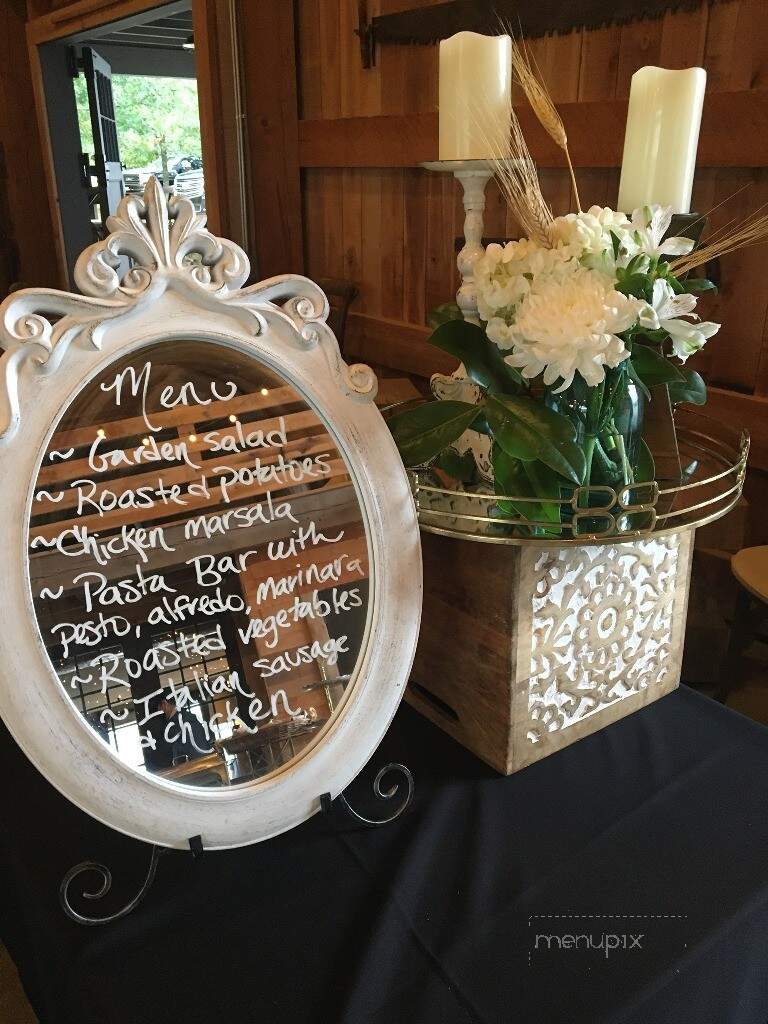 Menu
~ Garden salad
~ Roasted potatoes
~ Chicken marsala
~ Pasta Bar with
pesto, alfredo, marinara
~ Roasted vegetables
~ Italian sausage
& chicken
menupix